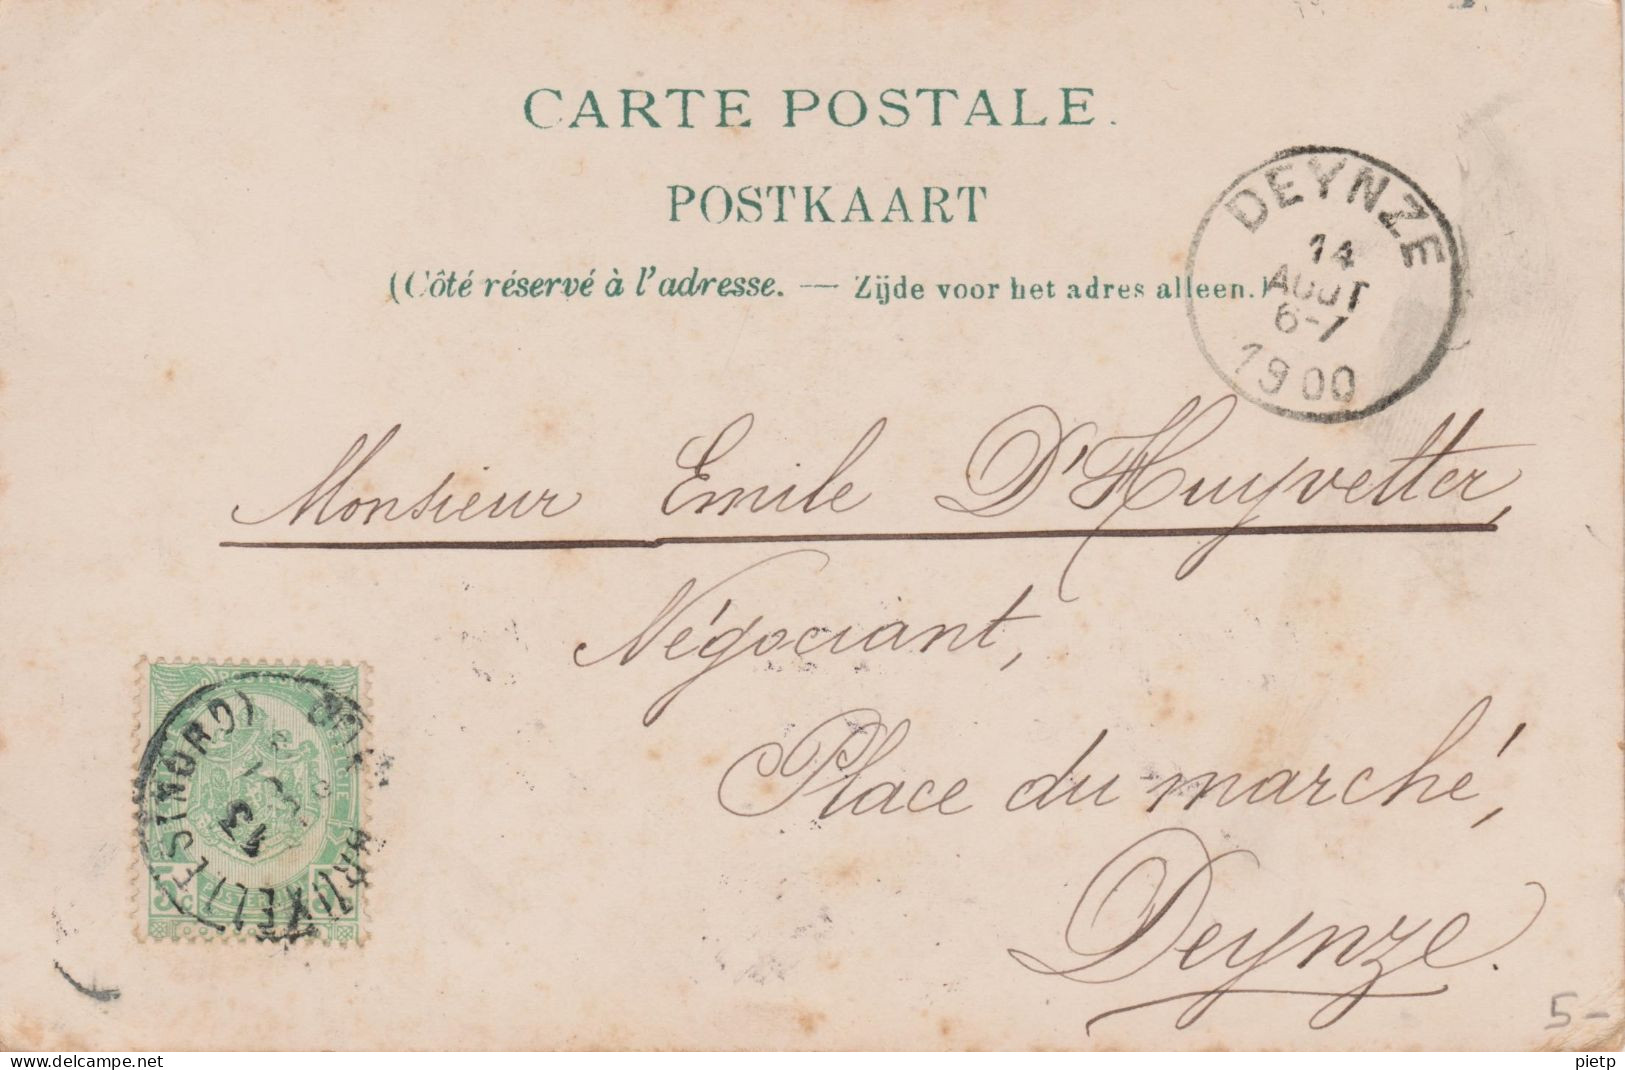 CARTE POSTALE.
POSTKAART
(Côté réservé à l'adresse. — Zijde voor het adres alleen.)
DEYNZE
14
AOUT
6-7
1900
Monsieur Emile D'Huyvetter,
Négociant,
Place du marché,
Deynze.
BRUXELLES (NORD)
13
5 c
5-
www.delcampe.net
pietp